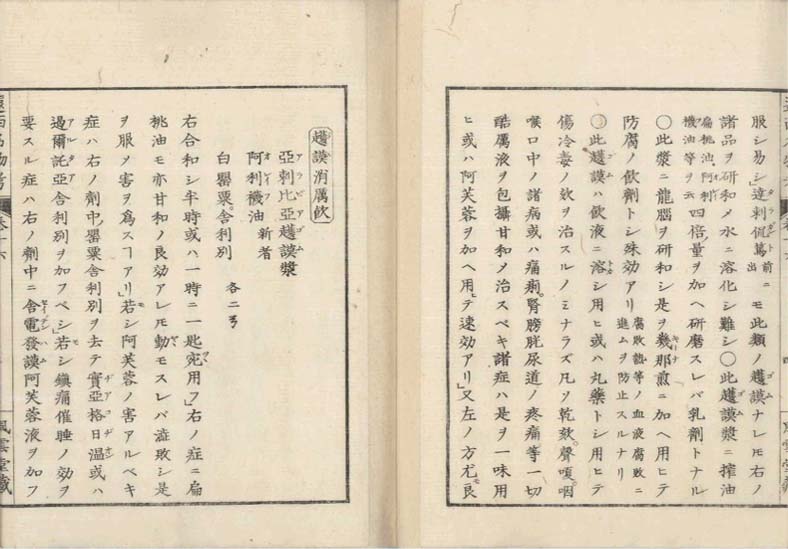 服シ易シ」達剌侃篤 前ニ出 モ此類ノ䞤謨ナレモ右ノ
諸品ヲ研和メ水ニ溶化シ難シ○此䞤謨漿ニ搾油
扁桃油阿利機油等ヲ云 四倍量ヲ加ヘ研磨スレバ乳劑トナル
○此漿ニ龍腦ヲ研和シ是ヲ幾那煎ニ加ヘ用ヒテ
防腐ノ飲劑トシ殊効アリ 腐敗熱等ノ血液腐敗ニ進ムヲ防止スルナリ
○此䞤謨ハ飲液ニ溶シ用ヒ或ハ丸藥トシ用ヒテ
傷冷毒ノ欬ヲ治スルノミナラズ凡ソ乾欬。聲嗄。咽
喉口中ノ諸病或ハ痛痢。腎膀胱尿道ノ疼痛等一切
酷厲液ヲ包攝甘和メ治スベキ諸症ハ是ヲ一味用
ヒ或ハ阿芙蓉ヲ加ヘ用ヒテ速効アリ」又左ノ方尤良
䞤謨消厲飲
亞剌比亞䞤謨漿
阿利機油 新者
白罌粟舎利別 各二
右合和シ半時或ハ一時ニ一匙宛用フ」右ノ症ニ扁
桃油モ亦甘和ノ良効アレモ動モスレバ澁敗シ是
ヲ服メ害ヲ爲スヿアリ」若シ阿芙蓉ノ害アルベキ
症ハ右ノ劑中罌粟舎利別ヲ去テ實亞格日温或ハ
過爾託亞舎利別ヲ加フベシ」若シ鎭痛催睡ノ効ヲ
要スル症ハ右ノ劑中ニ舎電發謨阿芙蓉液ヲ加フ
風雲堂藏